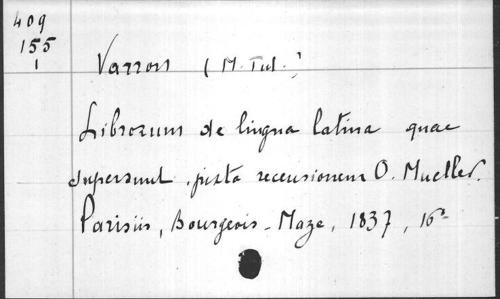 409
155
1
Varron (M. Tul.)
Librorum de lingua latina quae
supersunt, juxta recensionem O. Mueller.
Parisiis, Bourgeois-Maze, 1837, 16°